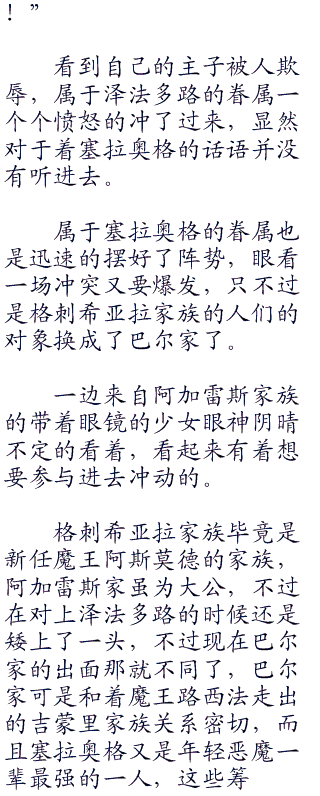 ！”
看到自己的主子被人欺
辱，属于泽法多路的眷属一
个个愤怒的冲了过来，显然
对于着塞拉奥格的话语并没
有听进去。
属于塞拉奥格的眷属也
是迅速的摆好了阵势，眼看
一场冲突又要爆发，只不过
是格刺希亚拉家族的人们的
对象换成了巴尔家了。
一边来自阿加雷斯家族
的带着眼镜的少女眼神阴晴
不定的看着，看起来有着想
要参与进去冲动的。
格刺希亚拉家族毕竟是
新任魔王阿斯莫德的家族，
阿加雷斯家虽为大公，不过
在对上泽法多路的时候还是
矮上了一头，不过现在巴尔
家的出面那就不同了，巴尔
家可是和着魔王路西法走出
的吉蒙里家族关系密切，而
且塞拉奥格又是年轻恶魔一
辈最强的一人，这些筹